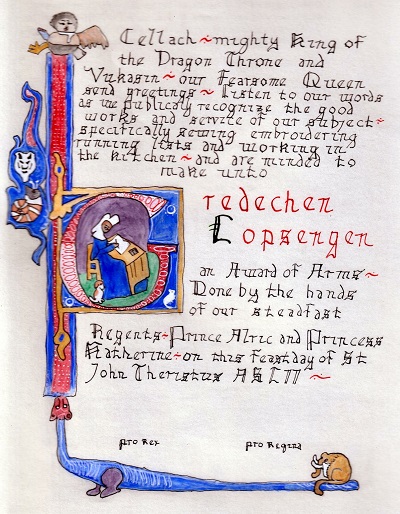 Cellach~mighty King of
the Dragon Throne and
Vukasin~our Fearsome Queen
send greetings~Listen to our words
as we publicaly recognize the good
works and service of our subject~
specifically sewing embroidering
running lists and working in
the kitchen~and are minded to
make unto
redechen
Lopsengen
an Award of Arms~
Done by the hands
of our steadfast
Regents~Prince Alric and Princess
Katherine~on this feastday of St
John Theristus ASLII~
pro Rex pro Regina